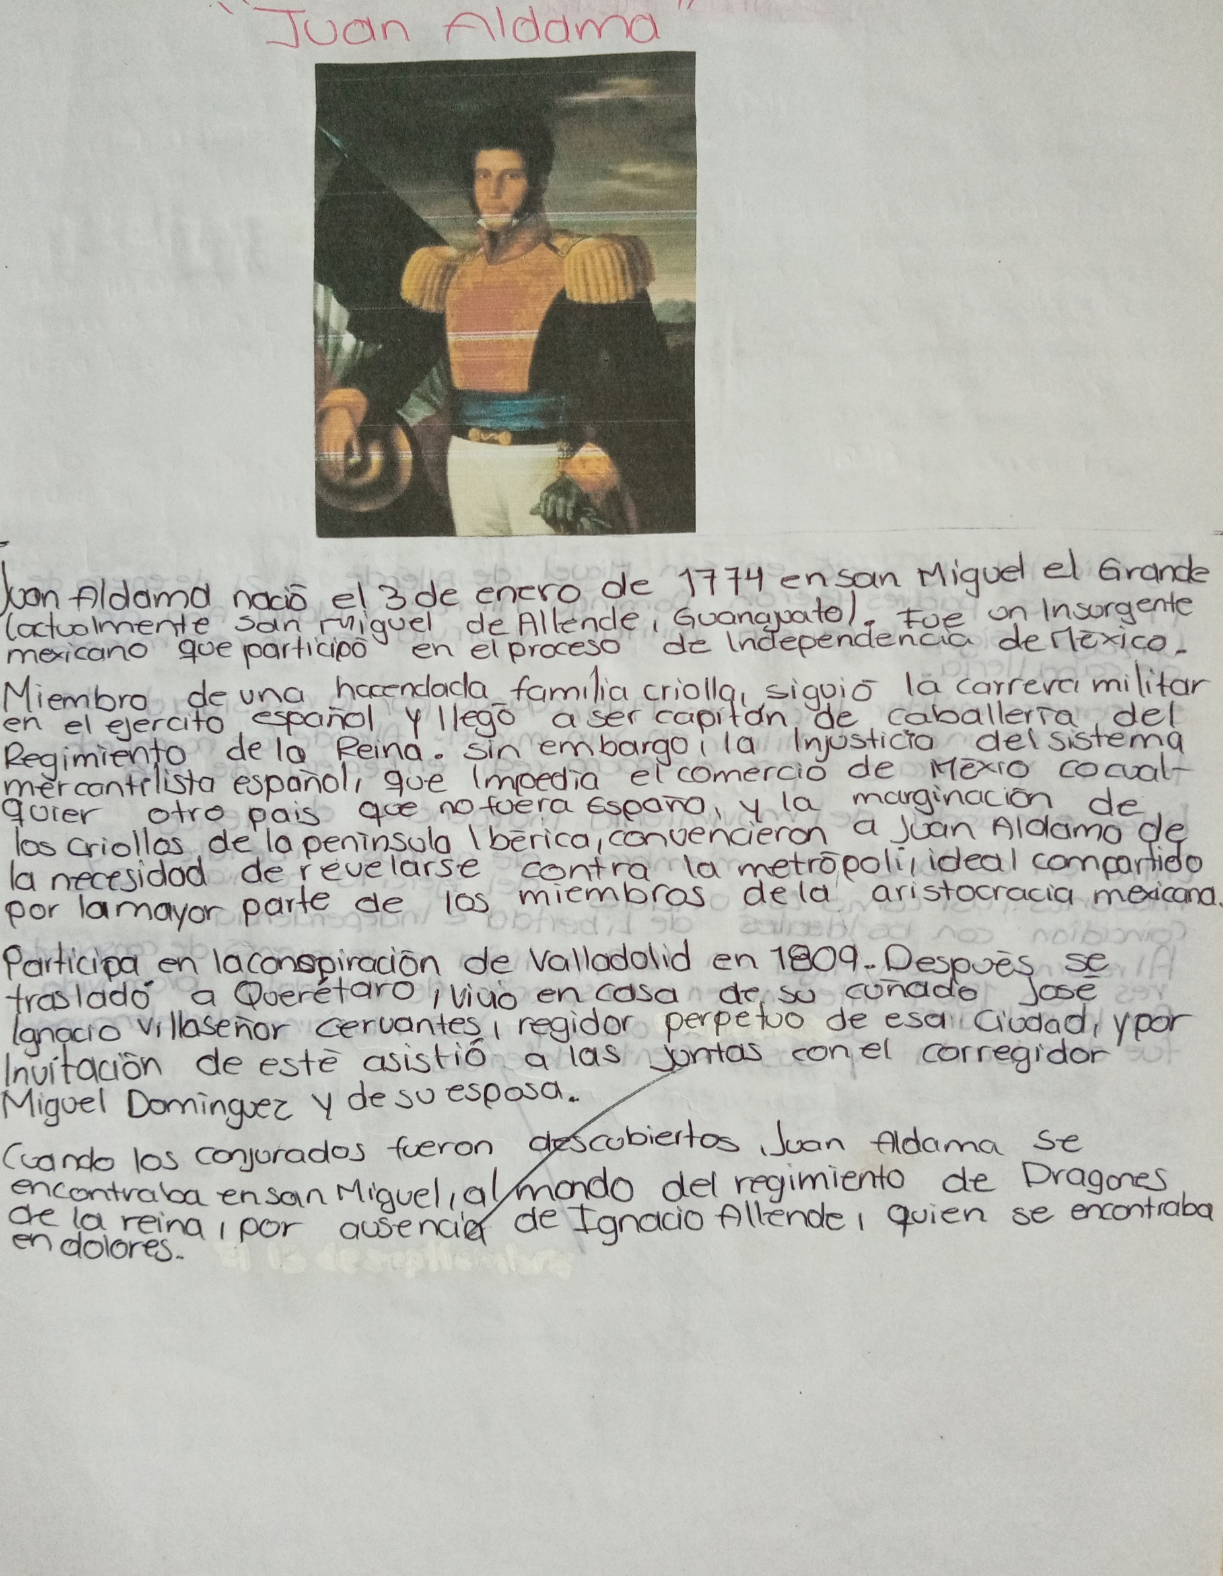 "Juan Aldama"
Juan Aldama nació el 3 de enero de 1774 en san Miguel el Grande
(actualmente san Miguel de Allende, Guanajuato). Fue un Insurgente
mexicano que participó en el proceso de Independencia de México.
Miembro de una hacendada familia criolla, siguió la carrera militar
en el ejercito español y llegó a ser capitán de caballeria del
Regimiento de la Reina. sin embargo, la Injusticia del sistema
mercantilista español, que Impedia el comercio de Méxio cocual-
quier otro pais que no fuera Españo, y la marginación de
los criollos de la peninsula Ibérica, convencieron a Juan Aldama de
la necesidad de revelarse contra la metrópoli, ideal compartido
por la mayor parte de los miembros de la aristocracia mexicana.
Participa en la conspiración de Valladolid en 1809. Después se
trasladó a Querétaro, vivió en casa de su cuñado José
Ignacio Villaseñor Cervantes, regidor perpetuo de esa Ciudad, y por
Invitación de esté asistió a las juntas con el corregidor
Miguel Dominguez y de su esposa.
Cuando los conjurados fueron descubiertos, Juan Aldama se
encontraba en san Miguel, al mando del regimiento de Dragones
de la reina, por ausencia de Ignacio Allende, quien se encontraba
en dolores.